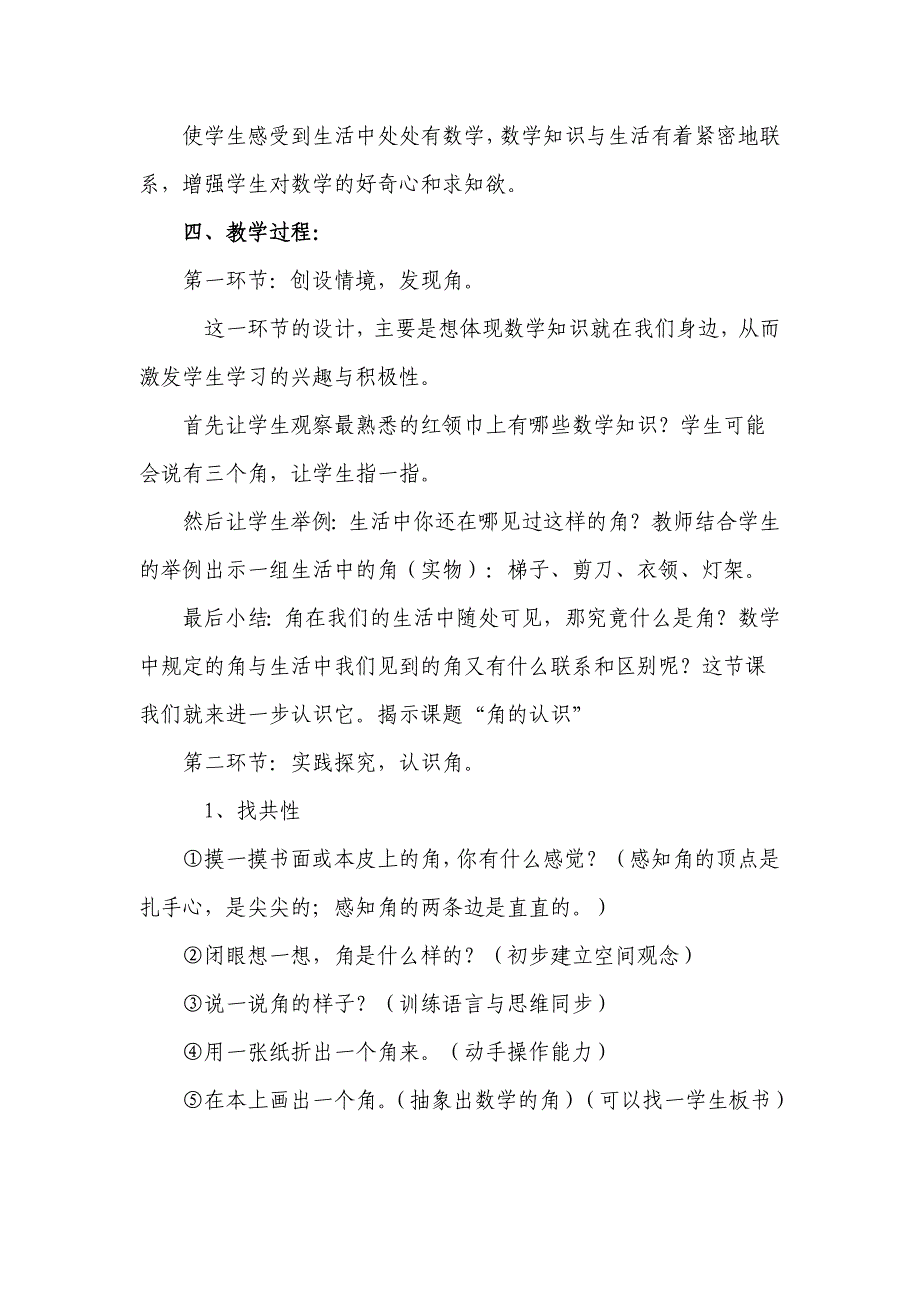 使学生感受到生活中处处有数学，数学知识与生活有着紧密地联
系，增强学生对数学的好奇心和求知欲。
四、教学过程：
第一环节：创设情境，发现角。
这一环节的设计，主要是想体现数学知识就在我们身边，从而
激发学生学习的兴趣与积极性。
首先让学生观察最熟悉的红领巾上有哪些数学知识？学生可能
会说有三个角，让学生指一指。
然后让学生举例：生活中你还在哪见过这样的角？教师结合学生
的举例出示一组生活中的角（实物）：梯子、剪刀、衣领、灯架。
最后小结：角在我们的生活中随处可见，那究竟什么是角？数学
中规定的角与生活中我们见到的角又有什么联系和区别呢？这节课
我们就来进一步认识它。揭示课题“角的认识”
第二环节：实践探究，认识角。
1、找共性
①摸一摸书面或本皮上的角，你有什么感觉？（感知角的顶点是
扎手心，是尖尖的；感知角的两条边是直直的。）
②闭眼想一想，角是什么样的？（初步建立空间观念）
③说一说角的样子？（训练语言与思维同步）
④用一张纸折出一个角来。（动手操作能力）
⑤在本上画出一个角。（抽象出数学的角）（可以找一学生板书）